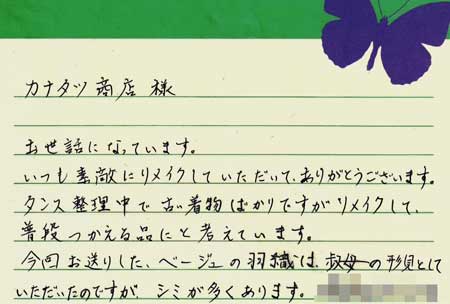 カナタツ商店様
お世話になっています。
いつも素敵にリメイクしていただいて、ありがとうございます。
タンス整理中で古い着物ばかりですがリメイクして、
普段つかえる品にと考えています。
今回お送りした、ベージュの羽織は、叔母の形見として
いただいたのですが、シミが多くあります。